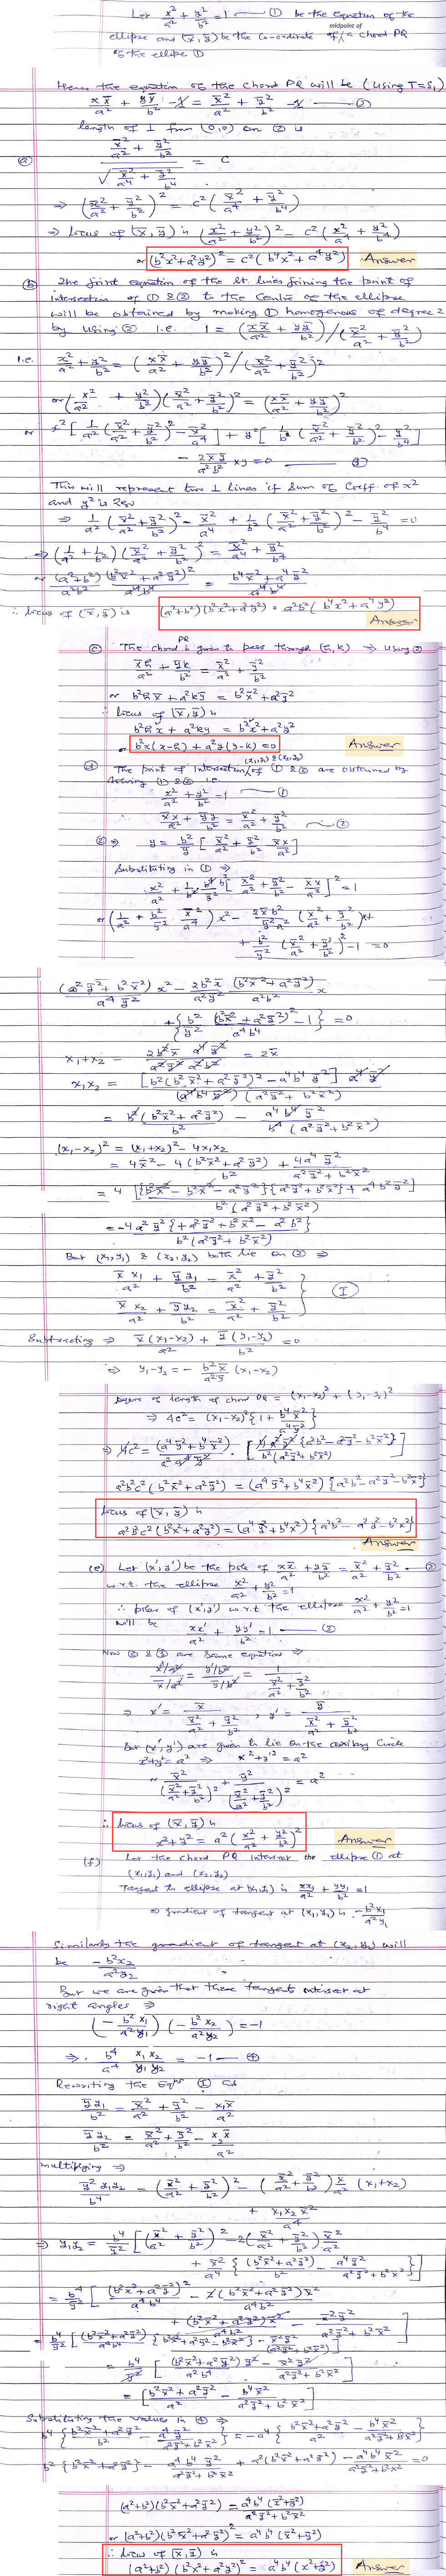 Let x²/a² + y²/b² = 1 — ① be the equation of the
midpoint of
ellipse and (x̄, ȳ) be the co-ordinate of a chord PQ
of the ellipse ①
Hence the equation of the chord PQ will be (using T=S₁)
xx̄/a² + yȳ/b² - 1 = x̄²/a² + ȳ²/b² - 1 — ②
length of ⊥ from (0,0) on ② is
(a) (x̄²/a² + ȳ²/b²) / √(x̄²/a⁴ + ȳ²/b⁴) = c
⇒ (x̄²/a² + ȳ²/b²)² = c² (x̄²/a⁴ + ȳ²/b⁴)
⇒ locus of (x̄, ȳ) is (x²/a² + y²/b²)² = c² (x²/a⁴ + y²/b⁴)
or (b²x² + a²y²)² = c² (b⁴x² + a⁴y²) Answer
(b) The joint equation of the st lines joining the point of
intersection of ① & ② to the centre of the ellipse
will be obtained by making ① homogenous of degree 2
by using ② i.e. 1 = (xx̄/a² + yȳ/b²) / (x̄²/a² + ȳ²/b²)
i.e. x²/a² + y²/b² = (xx̄/a² + yȳ/b²)² / (x̄²/a² + ȳ²/b²)²
or (x²/a² + y²/b²)(x̄²/a² + ȳ²/b²)² = (xx̄/a² + yȳ/b²)²
or x² [1/a² (x̄²/a² + ȳ²/b²)² - x̄²/a⁴] + y² [1/b² (x̄²/a² + ȳ²/b²)² - ȳ²/b⁴]
- 2x̄ȳ/a²b² xy = 0
This will represent two ⊥ lines if sum of coeff. of x²
and y² is zero
⇒ 1/a² (x̄²/a² + ȳ²/b²)² - x̄²/a⁴ + 1/b² (x̄²/a² + ȳ²/b²)² - ȳ²/b⁴ = 0
⇒ (1/a² + 1/b²)(x̄²/a² + ȳ²/b²)² = x̄²/a⁴ + ȳ²/b⁴
or (a²+b²)/a²b² (b²x̄² + a²ȳ²)²/a⁴b⁴ = (b⁴x̄² + a⁴ȳ²)/a⁴b⁴
∴ locus of (x̄, ȳ) is (a²+b²)(b²x²+a²y²)² = a²b²(b⁴x²+a⁴y²)
Answer
(c) The chord PQ is given to pass through (h, k) ⇒ using ②
x̄h/a² + ȳk/b² = x̄²/a² + ȳ²/b²
or b²hx̄ + a²kȳ = b²x̄² + a²ȳ²
∴ locus of (x̄, ȳ) is
b²hx + a²ky = b²x² + a²y²
or b²x(x-h) + a²y(y-k) = 0 Answer
(d) The point of intersection (x₁,y₁) & (x₂,y₂) of ① & ② are obtained by
solving ① & ② i.e.
x²/a² + y²/b² = 1 — ①
xx̄/a² + yȳ/b² = x̄²/a² + ȳ²/b² — ②
② ⇒ y = b²/ȳ [x̄²/a² + ȳ²/b² - xx̄/a²]
Substituting in ① ⇒
x²/a² + 1/b² b⁴/ȳ² [x̄²/a² + ȳ²/b² - xx̄/a²]² = 1
or (1/a² + b²/ȳ² x̄²/a⁴) x² - 2x̄b²/ȳ²a² (x̄²/a² + ȳ²/b²) x +
+ b²/ȳ² (x̄²/a² + ȳ²/b²)² - 1 = 0
(a²ȳ² + b²x̄²)/a⁴ȳ² x² - 2b²x̄/a²ȳ² (b²x̄² + a²ȳ²)/a²b² x
+ {b²/ȳ² (b²x̄² + a²ȳ²)²/a⁴b⁴ - 1} = 0
x₁+x₂ = 2b²x̄ a⁴ȳ² / a²ȳ² a²b² = 2x̄
x₁x₂ = [b²(b²x̄² + a²ȳ²)² - a⁴b⁴ȳ²] a⁴ȳ² / (a⁴b⁴ȳ²)(a²ȳ² + b²x̄²)
= b²(b²x̄² + a²ȳ²)/b² - a⁴b⁴ȳ² / b⁴(a²ȳ² + b²x̄²)
(x₁-x₂)² = (x₁+x₂)² - 4x₁x₂
= 4x̄² - 4(b²x̄² + a²ȳ²)/b² + 4a⁴ȳ²/(a²ȳ² + b²x̄²)
= 4 [{b²x̄² - b²x̄² - a²ȳ²}{a²ȳ² + b²x̄²} + a⁴b²ȳ²] / b²(a²ȳ² + b²x̄²)
= -4a²ȳ² {+a²ȳ² + b²x̄² - a²b²} / b²(a²ȳ² + b²x̄²)
But (x₁,y₁) & (x₂,y₂) both lie on ② ⇒
x̄x₁/a² + ȳy₁/b² = x̄²/a² + ȳ²/b²
x̄x₂/a² + ȳy₂/b² = x̄²/a² + ȳ²/b² } Ⓘ
Subtracting ⇒ x̄(x₁-x₂)/a² + ȳ(y₁-y₂)/b² = 0
⇒ y₁-y₂ = - b²x̄/a²ȳ (x₁-x₂)
Square of length of chord PQ = (x₁-x₂)² + (y₁-y₂)²
⇒ 4c² = (x₁-x₂)² {1 + b⁴x̄²/a⁴ȳ²}
⇒ 4c² = (a⁴ȳ² + b⁴x̄²)/a⁴ȳ² · [4a²ȳ² {a²b² - a²ȳ² - b²x̄²} / b²(a²ȳ² + b²x̄²)]
a²b²c² (b²x̄² + a²ȳ²) = (a⁴ȳ² + b⁴x̄²) {a²b² - a²ȳ² - b²x̄²}
locus of (x̄, ȳ) is
a²b²c² (b²x² + a²y²) = (a⁴y² + b⁴x²) {a²b² - a²y² - b²x²}
Answer
(e) Let (x', y') be the pole of xx̄/a² + yȳ/b² = x̄²/a² + ȳ²/b² — ②
w.r.t. the ellipse x²/a² + y²/b² = 1
∴ polar of (x', y') w.r.t the ellipse x²/a² + y²/b² = 1
will be xx'/a² + yy'/b² = 1 — ③
Now ② & ③ are same equation ⇒
(x'/a²)/(x̄/a²) = (y'/b²)/(ȳ/b²) = 1/(x̄²/a² + ȳ²/b²)
⇒ x' = x̄/(x̄²/a² + ȳ²/b²), y' = ȳ/(x̄²/a² + ȳ²/b²)
But (x', y') are given to lie on the auxiliary circle
x²+y² = a² ⇒ x'²+y'² = a²
x̄²/(x̄²/a² + ȳ²/b²)² + ȳ²/(x̄²/a² + ȳ²/b²)² = a²
∴ locus of (x̄, ȳ) is
x²+y² = a² (x²/a² + y²/b²)² Answer
(f) Let the chord PQ intersect the ellipse ① at
(x₁,y₁) and (x₂,y₂)
Tangent to ellipse at (x₁,y₁) is xx₁/a² + yy₁/b² = 1
⇒ gradient of tangent at (x₁,y₁) is -b²x₁/a²y₁
Similarly the gradient of tangent at (x₂,y₂) will
be -b²x₂/a²y₂
But we are given that these tangents intersect at
right angles ⇒
(- b²x₁/a²y₁)(- b²x₂/a²y₂) = -1
⇒ b⁴/a⁴ x₁x₂/y₁y₂ = -1 — ④
Rewriting the Eqns Ⓘ as
ȳy₁/b² = x̄²/a² + ȳ²/b² - x₁x̄/a²
ȳy₂/b² = x̄²/a² + ȳ²/b² - x₂x̄/a²
multiplying ⇒
ȳ²y₁y₂/b⁴ = (x̄²/a² + ȳ²/b²)² - (x̄²/a² + ȳ²/b²) x̄/a² (x₁+x₂)
+ x₁x₂x̄²/a⁴
⇒ y₁y₂ = b⁴/ȳ² [(x̄²/a² + ȳ²/b²)² - 2(x̄²/a² + ȳ²/b²) x̄²/a²
+ x̄²/a⁴ {(b²x̄² + a²ȳ²)/b² - a⁴ȳ²/(a²ȳ² + b²x̄²)}]
= b⁴/ȳ² [(b²x̄² + a²ȳ²)²/a⁴b⁴ - 2(b²x̄² + a²ȳ²)x̄²/a⁴b²
+ (b²x̄² + a²ȳ²)x̄²/a⁴b² - x̄²ȳ²/(a²ȳ² + b²x̄²)]
= b⁴/ȳ² [(b²x̄² + a²ȳ²)/a⁴b⁴ {b²x̄² + a²ȳ² - b²x̄²} - x̄²ȳ²/(a²ȳ² + b²x̄²)]
= b⁴/ȳ² [(b²x̄² + a²ȳ²)ȳ²/a²b⁴ - x̄²ȳ²/(a²ȳ² + b²x̄²)]
= [(b²x̄² + a²ȳ²)/a² - b⁴x̄²/(a²ȳ² + b²x̄²)]
Substituting the values in ④ ⇒
b⁴ {(b²x̄² + a²ȳ²)/b² - a⁴ȳ²/(a²ȳ² + b²x̄²)} = -a⁴ {(b²x̄² + a²ȳ²)/a² - b⁴x̄²/(a²ȳ² + b²x̄²)}
b² {b²x̄² + a²ȳ²} - a⁴b⁴ȳ²/(a²ȳ² + b²x̄²) + a²(b²x̄² + a²ȳ²) - a⁴b⁴x̄²/(a²ȳ² + b²x̄²) = 0
(a²+b²)(b²x̄² + a²ȳ²) = a⁴b⁴(x̄²+ȳ²)/(a²ȳ² + b²x̄²)
or (a²+b²)(b²x̄² + a²ȳ²)² = a⁴b⁴(x̄²+ȳ²)
∴ locus of (x̄, ȳ) is
(a²+b²)(b²x² + a²y²)² = a⁴b⁴(x²+y²) Answer